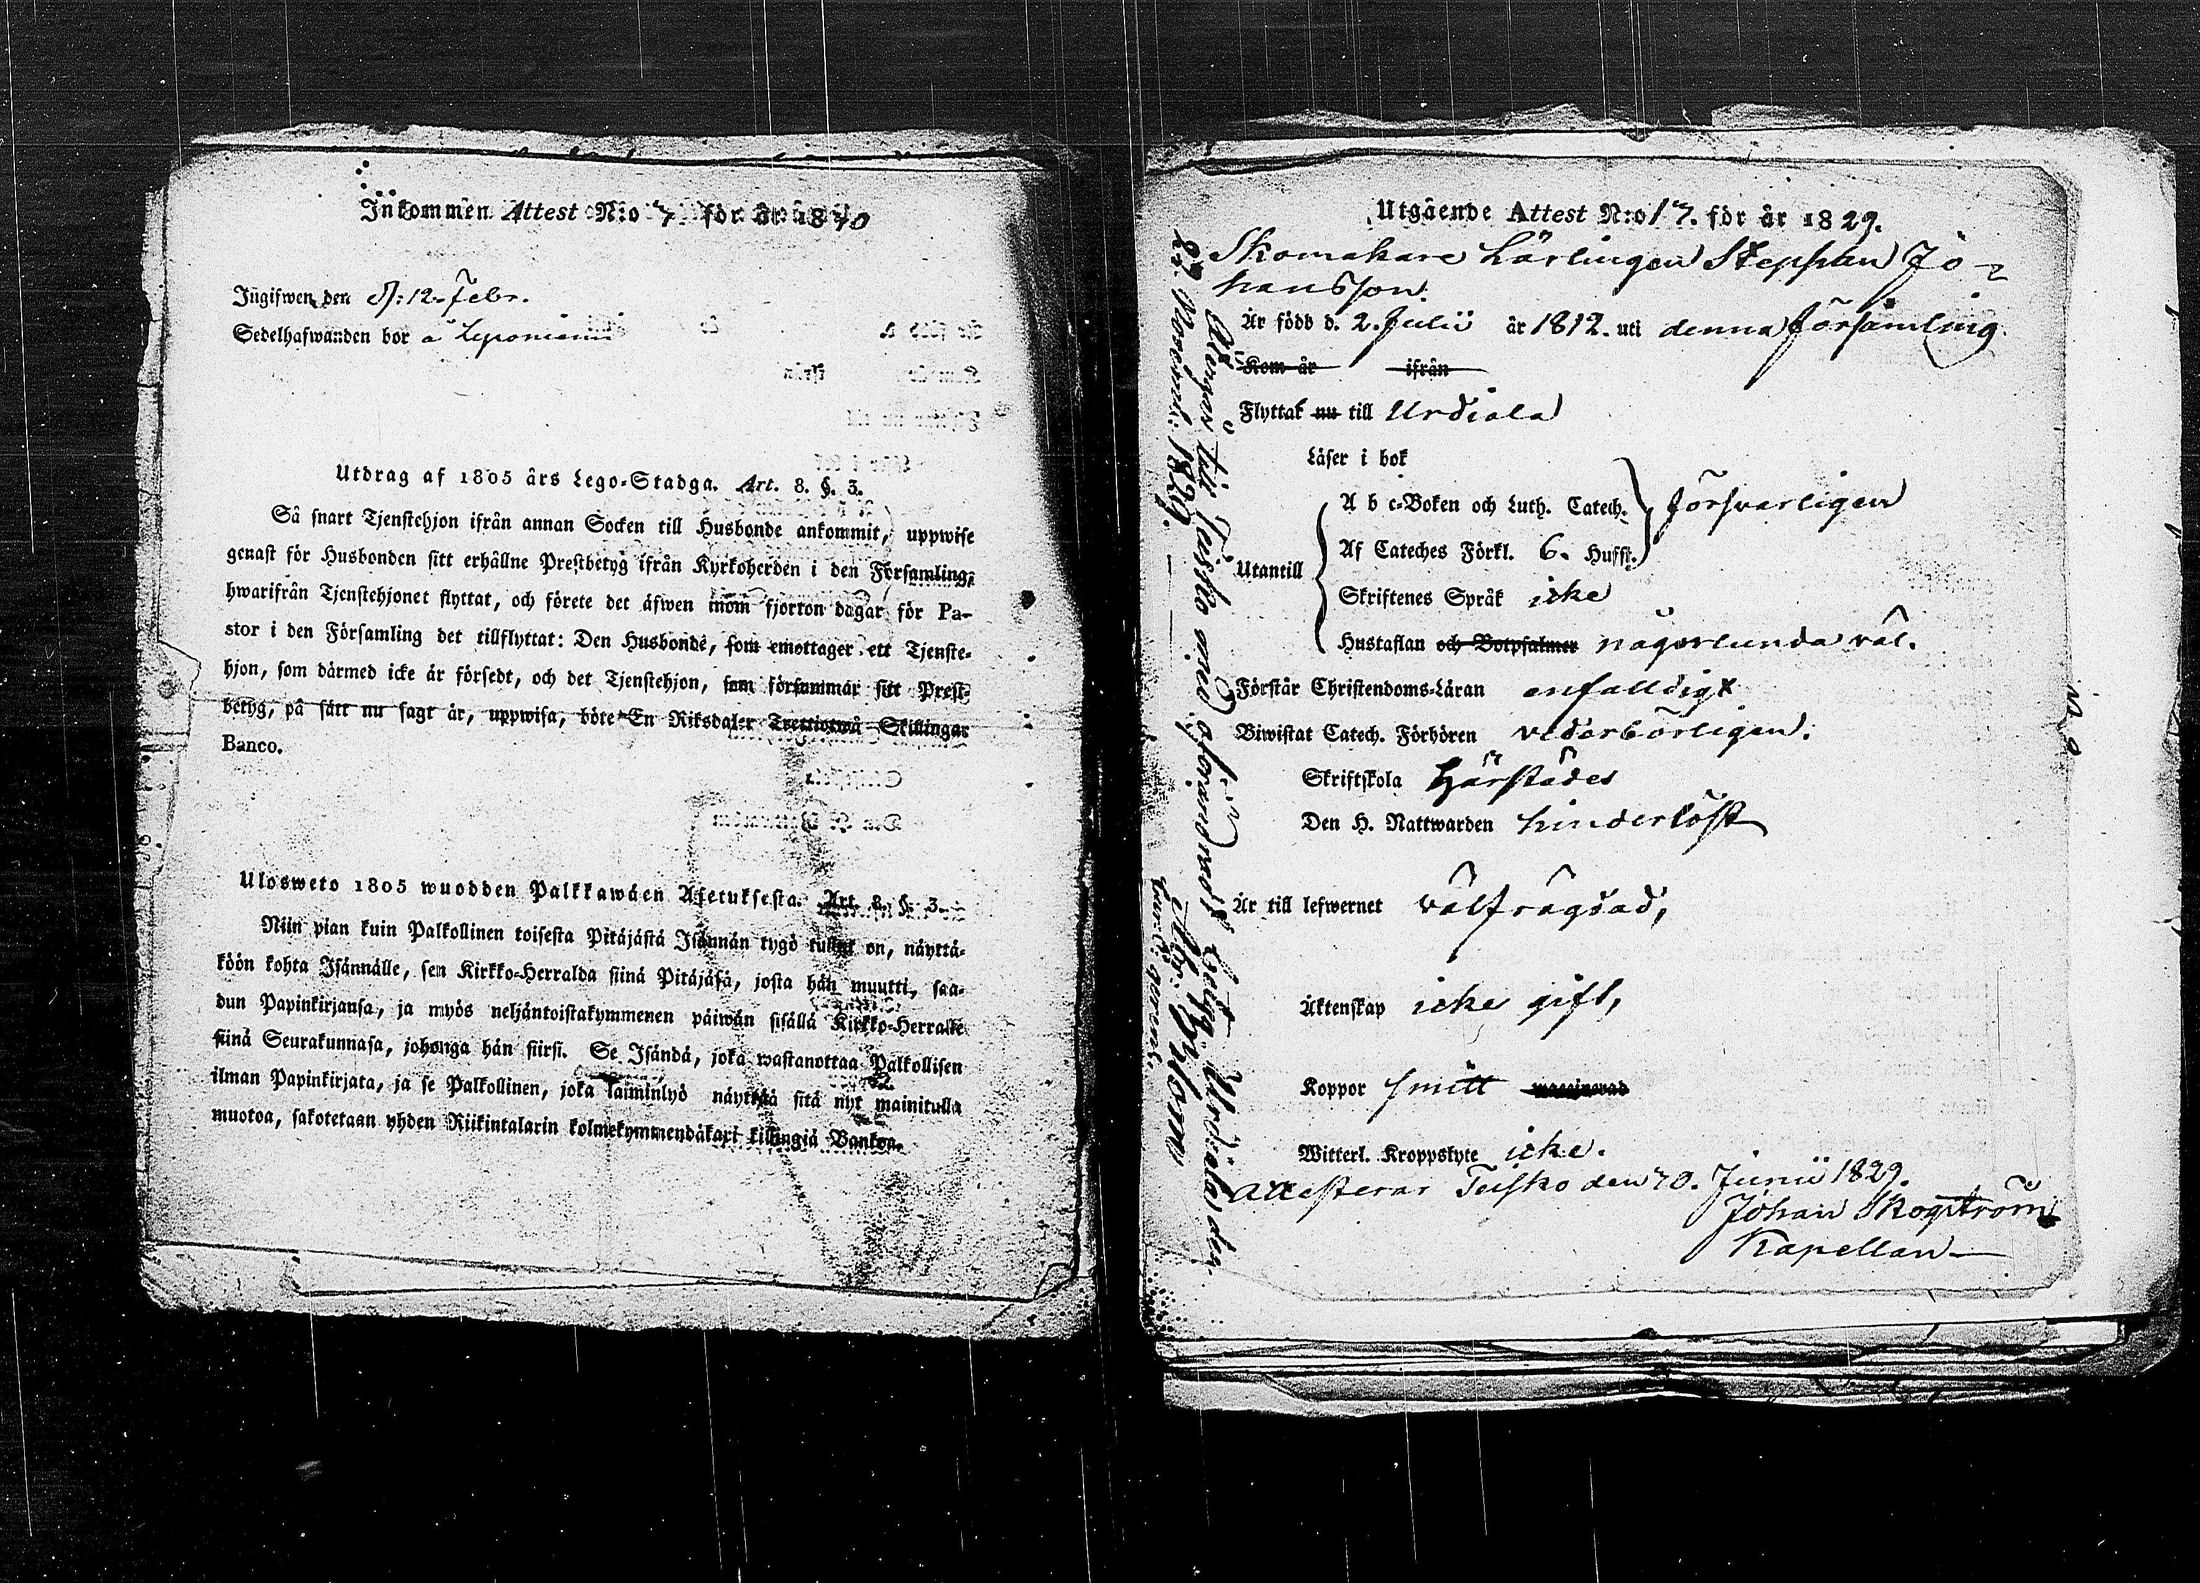 Inkommen Attest N:o 7 för år 1830
Ingifwen den d: 12. Febr.
Sedelhafwanden bor å
Utdrag af 1805 års Lego-Stadga. Art. 8. §. 3.
Så snart Tjenstehjon ifrån annan Socken till Husbonde ankommit, uppwise
genast för Husbonden sitt erhållne Prestbetyg ifrån Kyrkoherden i den Församling,
hwarifrån Tjenstehjonet flyttat, och förete det äfwen inom fjorton dagar för Pa-
stor i den Församling det tillflyttat: Den Husbonde, som emottager ett Tjenste-
hjon, som därmed icke är försedt, och det Tjenstehjon, som försummar sitt Prest-
betyg, på sätt nu sagt är, uppwisa, böte En Riksdaler Trettiotwå Skillingar
Banco.
Ulosweto 1805 wuodden Palkkawäen Asetuksesta. Art. 8. §. 3.
Niin pian kuin Palkollinen toisesta Pitäjästä Isännän tygö tullut on, näyttä-
köön kohta Isännälle, sen Kirkko-Herralda siinä Pitäjäsä, josta hän muutti, saa-
dun Papinkirjansa, ja myös neljäntoistakymmenen päiwän sisällä Kirkko-Herralle
siinä Seurakunnasa, johonga hän siirsi. Se Isändä, joka wastanottaa Palkollisen
ilman Papinkirjata, ja se Palkollinen, joka laiminlyö näyttää sitä nyt mainitulla
muotoa, sakotetaan yhden Riikintalarin kolmekymmendäkaxi killingiä Bankoa.
Utgående Attest N:o 17. för år 1829.
Skomakare Lärlingen Stephan Jo-
hansson.
Är född d. 2. Julii år 1812. uti denna församling
Kom år ifrån
Flyttat nu till Urdiala
Läser i bok
A b c-Boken och Luth. Catech. försvarligen
Af Cateches Förkl. 6. Hufst.
Utantill
Skriftenes Språk icke
Hustaflan och Botpsalmer någorlunda väl.
Förstår Christendoms-Läran enfalldigt
Biwistat Catech. Förhören vederbörligen.
Skriftskola Härstädes
Den H. Nattwarden hinderlöst
Är till lefwernet välfrägdad,
Äktenskap icke gift,
Koppor smitt waccinerad
Witterl. Kroppslyte icke.
Attesterar Teisko den 10. Junii 1829.
Johan Skogström
Kapellan
Återgår till Teisko med oförändradt betyg Urdiala den
27 Novemb: 1829.